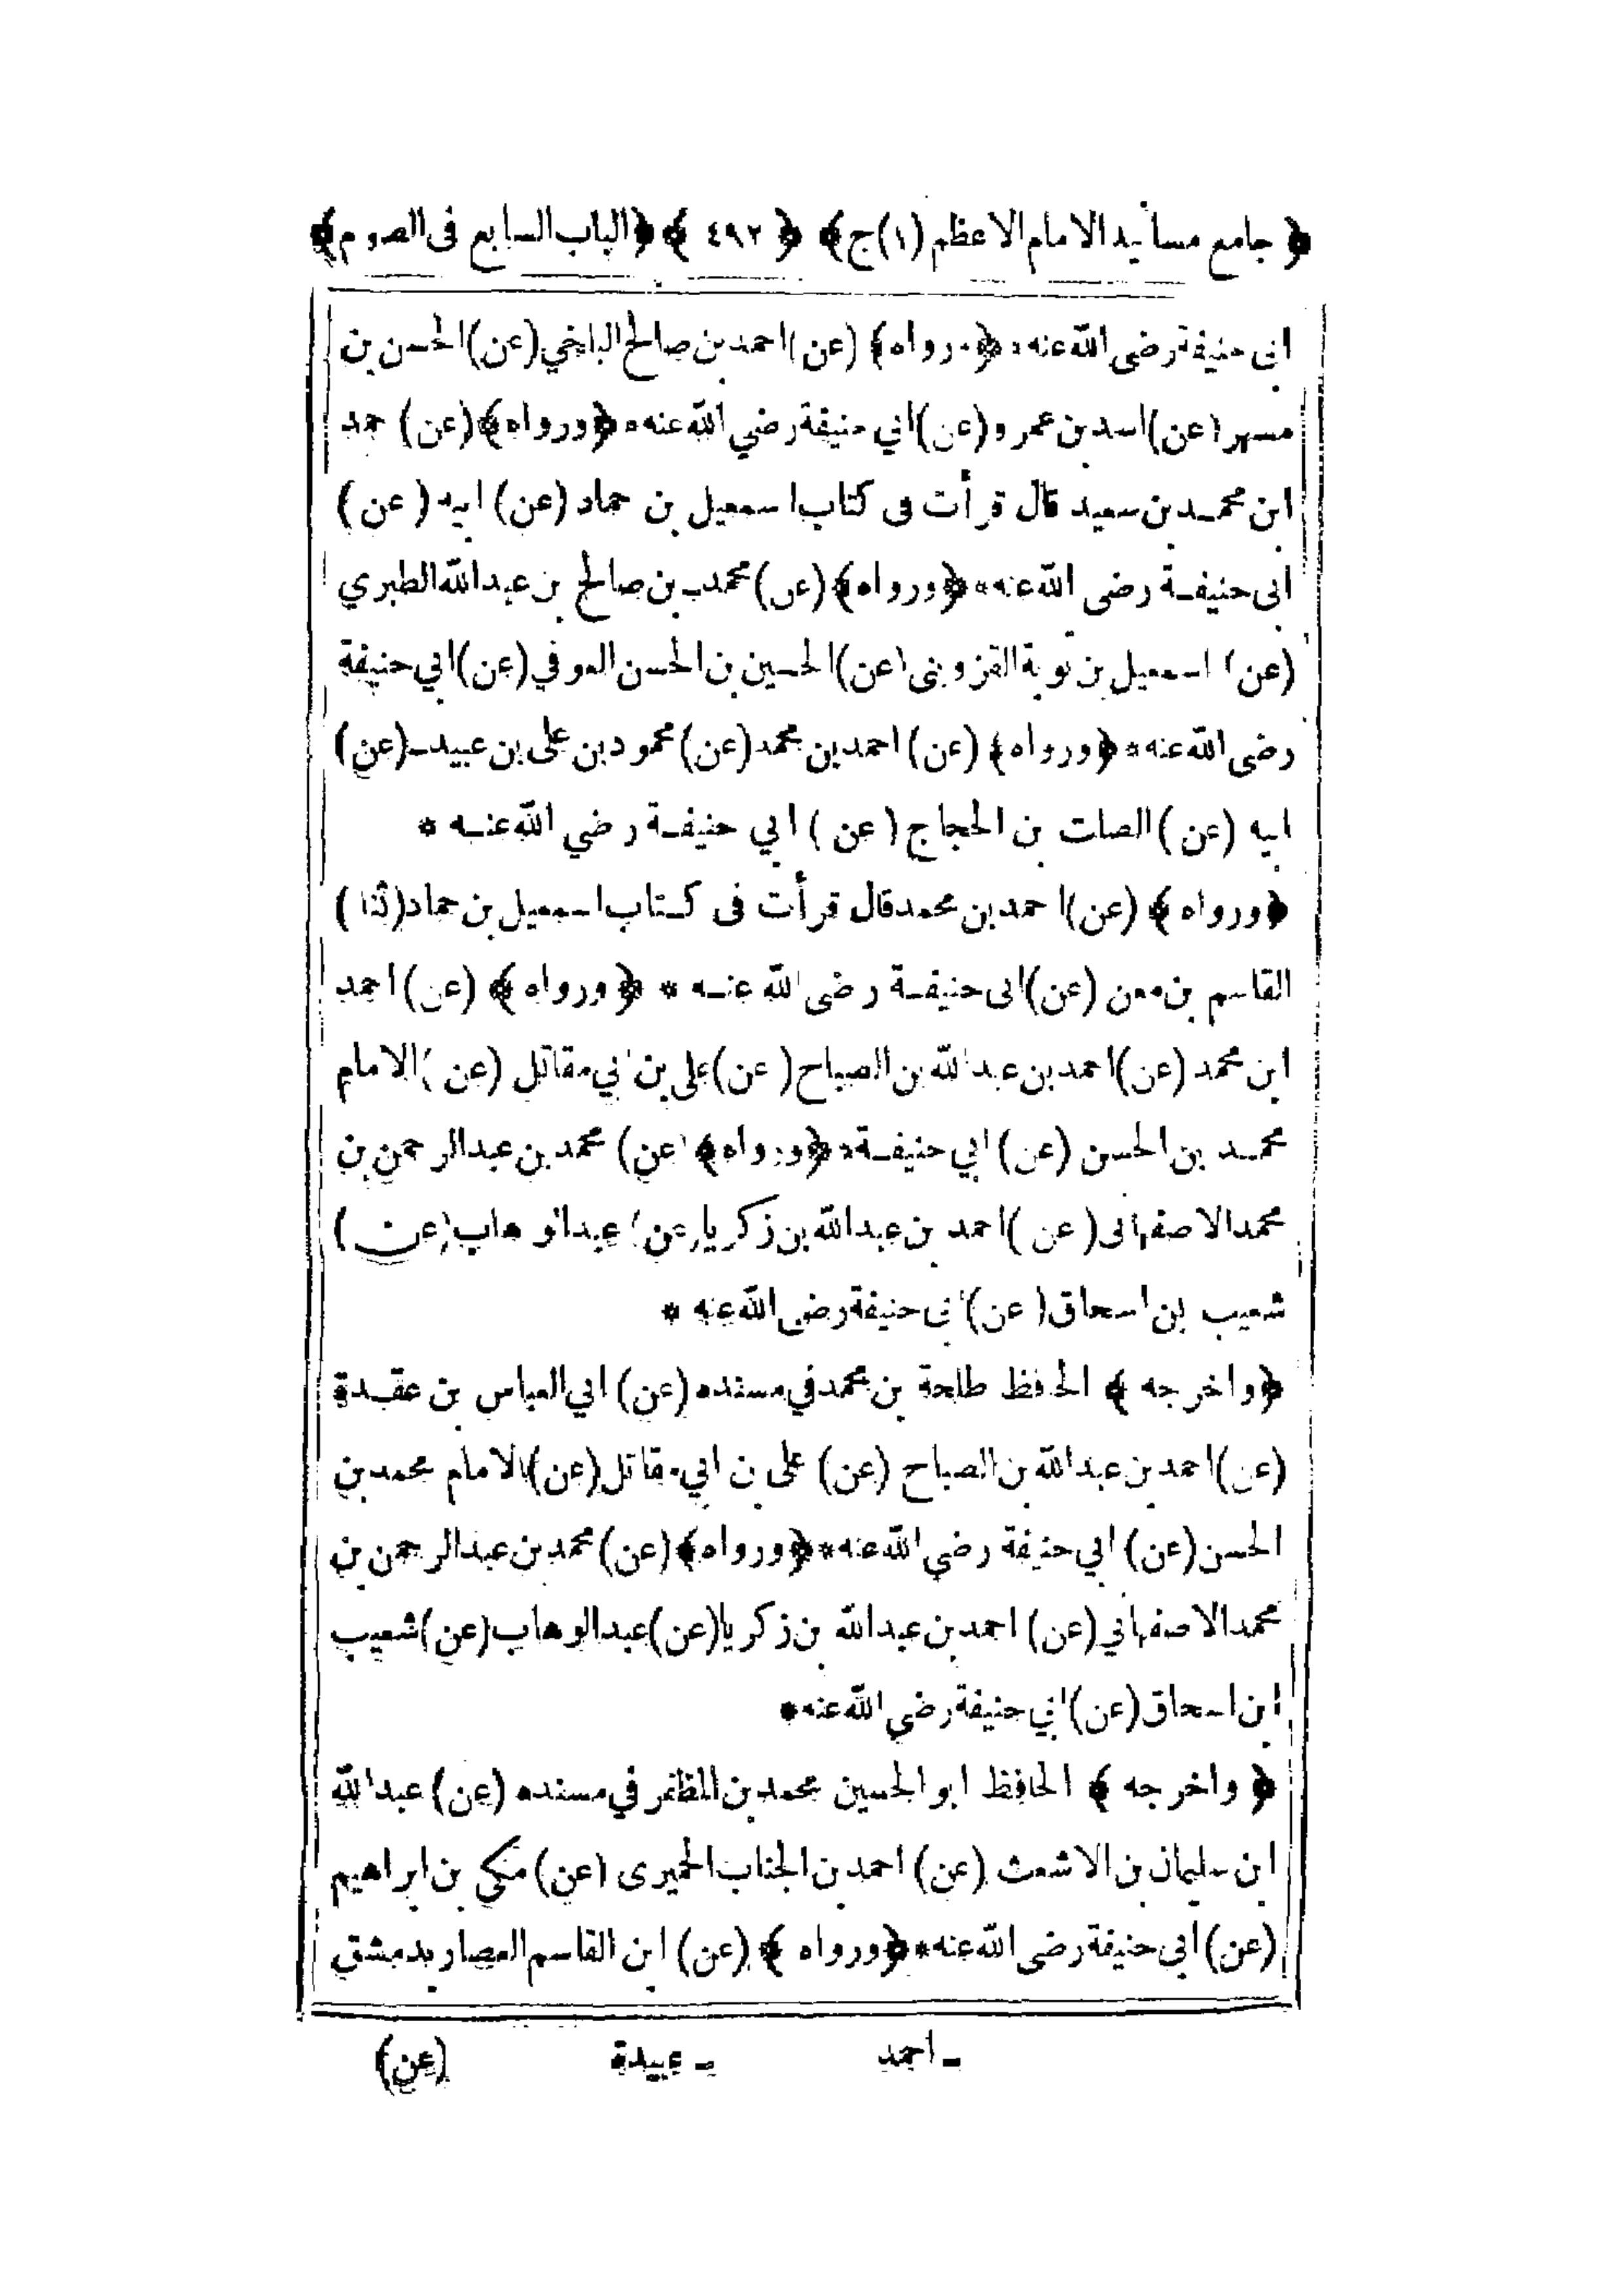 ﴿ جامع مسانيد الامام الاعظم (١)ج﴾ ﴿ ٤٩٢ ﴾ ﴿الباب السابع فى الصوم﴾
ابى حنيفة رضى الله عنه * ﴿ورواه﴾ (عن) احمد بن صالح البلخي (عن) الحسن بن
مسهر (عن) اسد بن عمرو (عن) ابي حنيفة رضي الله عنه * ﴿ورواه﴾ (عن) حمد
ابن محمد بن سعيد قال قرأت فى كتاب اسمعيل بن حماد (عن) ابيه (عن)
ابى حنيفة رضى الله عنه * ﴿ورواه﴾ (عن) محمد بن صالح بن عبد الله الطبري
(عن) اسمعيل بن توبة القزوينى (عن) الحسين بن الحسن العوفي (عن) ابي حنيفة
رضى الله عنه * ﴿ورواه﴾ (عن) احمد بن محمد (عن) محمود بن على بن عبيد (عن)
ابيه (عن) الصلت بن الحجاج (عن) ابي حنيفة رضي الله عنه *
﴿ورواه﴾ (عن) احمد بن محمد قال قرأت فى كتاب اسمعيل بن حماد (ثنا)
القاسم بن معن (عن) ابى حنيفة رضى الله عنه * ﴿ورواه﴾ (عن) احمد
ابن محمد (عن) احمد بن عبد الله بن الصباح (عن) على بن ابي مقاتل (عن) الامام
محمد بن الحسن (عن) ابي حنيفة * ﴿ورواه﴾ (عن) محمد بن عبد الرحمن بن
محمد الاصفهانى (عن) احمد بن عبد الله بن زكريا (عن) عبد الوهاب (عن)
شعيب بن اسحاق (عن) ابى حنيفة رضى الله عنه *
﴿واخرجه﴾ الحافظ طلحة بن محمد في مسنده (عن) ابي العباس بن عقدة
(عن) احمد بن عبد الله بن الصباح (عن) على بن ابي مقاتل (عن) الامام محمد بن
الحسن (عن) ابي حنيفة رضي الله عنه * ﴿ورواه﴾ (عن) محمد بن عبد الرحمن بن
محمد الاصفهاني (عن) احمد بن عبد الله بن زكريا (عن) عبد الوهاب (عن) شعيب
ابن اسحاق (عن) ابي حنيفة رضي الله عنه *
﴿واخرجه﴾ الحافظ ابو الحسين محمد بن المظفر في مسنده (عن) عبد الله
ابن سليمان بن الاشعث (عن) احمد بن الجناب الحميرى (عن) مكي بن ابراهيم
(عن) ابي حنيفة رضى الله عنه * ﴿ورواه﴾ (عن) ابن القاسم العصار بدمشق
ـ احمد ـ عبيدة (عن)